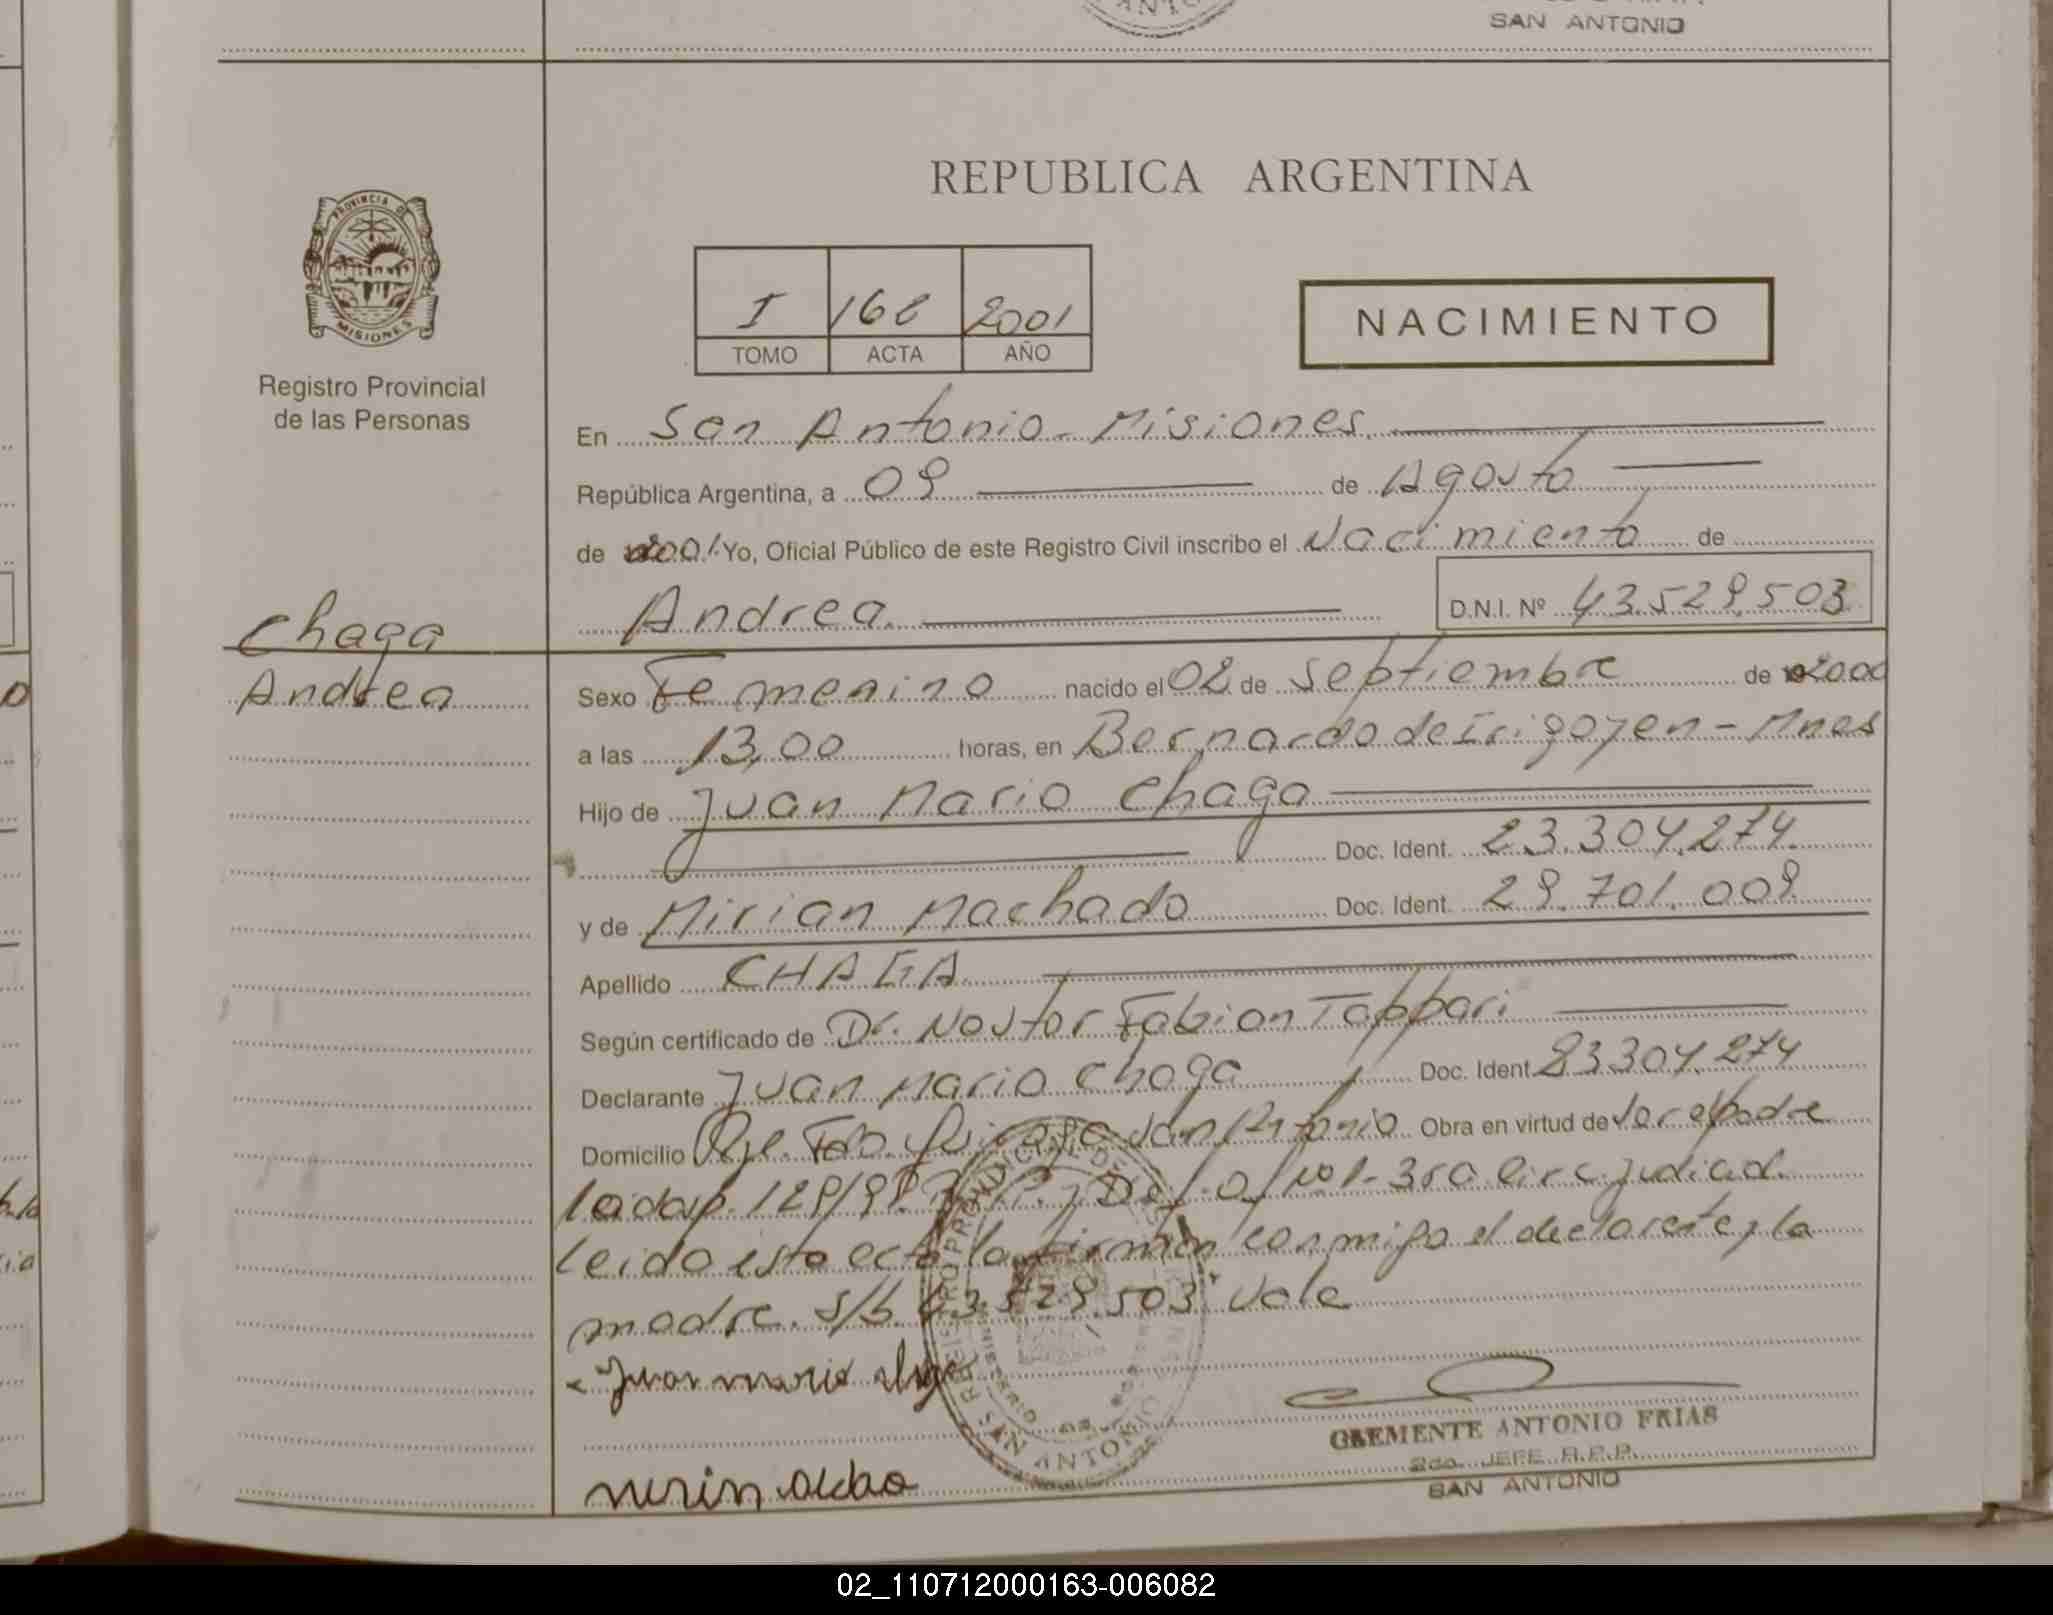 SAN ANTONIO
REPUBLICA ARGENTINA
PROVINCIA DE
MISIONES
Registro Provincial
de las Personas
I 168 2001
TOMO ACTA AÑO
NACIMIENTO
En San Antonio - Misiones.
República Argentina, a 09 de Agosto
de 2001. Yo, Oficial Público de este Registro Civil inscribo el Nacimiento de
Andrea. D.N.I. Nº 43.529.503
Chaga
Andrea
Sexo Femenino nacido el 02 de Septiembre de 2000
a las 13,00 horas, en Bernardo de Irigoyen - Mnes
Hijo de Juan Mario Chaga
Doc. Ident. 23.304.274.
y de Mirian Machado Doc. Ident. 29.701.009.
Apellido CHAGA
Según certificado de Dr. Nestor Fabian Tappari
Declarante Juan Mario Chaga Doc. Ident 23304.274
Domicilio San Antonio Obra en virtud de ser el padre
Nº1- 3ra Circ. Judicial.
Leido esta acta la firman conmigo el declarante y la
madre. S/b. 43.529.503 Vale
Juan mario
SAN ANTONIO
CLEMENTE ANTONIO FRIAS
2do. JEFE R.P.P.
SAN ANTONIO
02_110712000163-006082